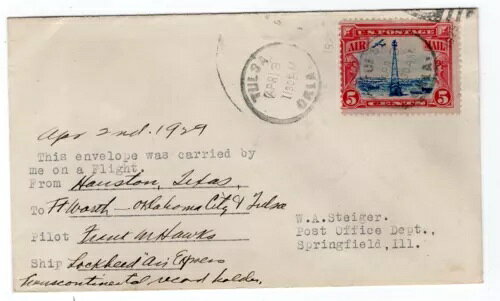 U.S. POSTAGE
AIR MAIL
5 CENTS 5
TULSA
APR 3
1130 AM
OKLA.
Apr 2nd. 1929
This envelope was carried by
me on a Flight
From Houston, Texas,
To Ft Worth - Oklahoma City & Tulsa
Pilot Frank M Hawks
Ship Lockheed "Air Express
transcontinental record holder.
W.A. Steiger.
Post Office Dept.,
Springfield, Ill.